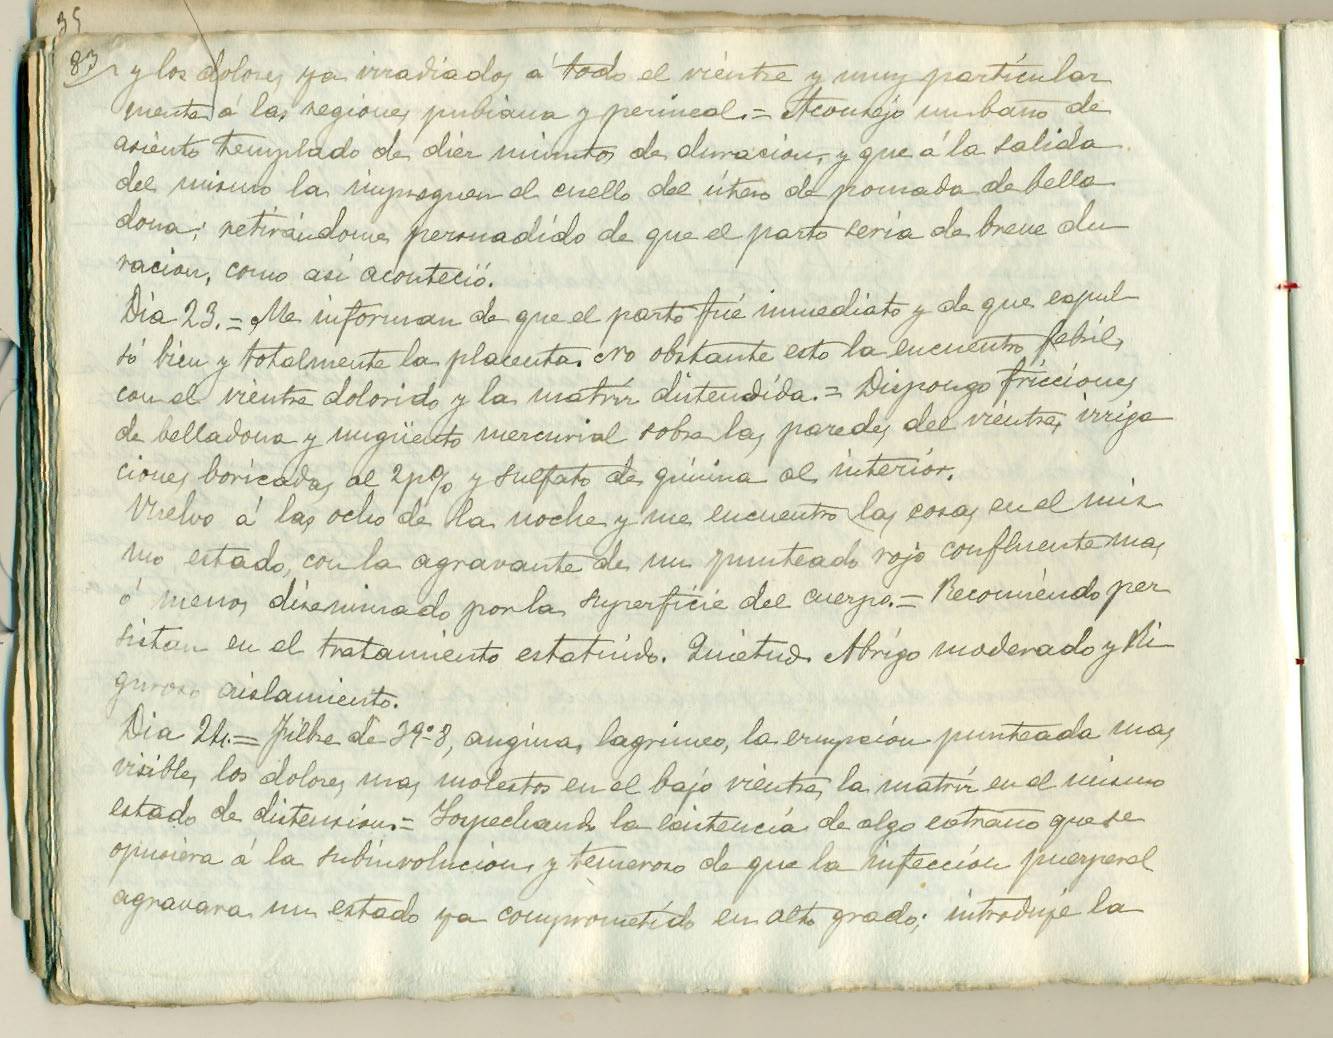 35
83
y los dolores ya irradiados á todo el vientre y muy particular
mente á las regiones pubiana y perineal. = Aconsejo un baño de
asiento templado de diez minutos de duracion, y que á la salida
del mismo la impregnen el cuello del útero de pomada de bella
dona; retirándome persuadido de que el parto sería de breve du
racion, como así aconteció.
Dia 23. = Me informan de que el parto fué inmediato y de que espul
só bien y totalmente la placenta. No obstante esto la encuentro febril,
con el vientre dolorido y la matriz distendida. = Dispongo fricciones
de belladona y ungüento mercurial sobre las paredes del vientre, irriga
ciones boricadas al 2 p% y sulfato de quinina al interior.
Vuelvo á las ocho de la noche y me encuentro las cosas en el mis
mo estado, con la agravante de un punteado rojo confluente mas
ó menos diseminado por la superficie del cuerpo. = Recomiendo per
sistan en el tratamiento estatuido. Quietud. Abrigo moderado y Ri
guroso aislamiento.
Dia 24. = Fiebre de 39º8, angina, lagrimeo, la erupción punteada mas
visible, los dolores mas molestos en el bajo vientre, la matriz en el mismo
estado de distension. = Sospechando la esistencia de algo estraño que se
opusiera á la subinvolucion, y temeroso de que la infección puerperal
agravara un estado ya comprometido en alto grado; introduje la